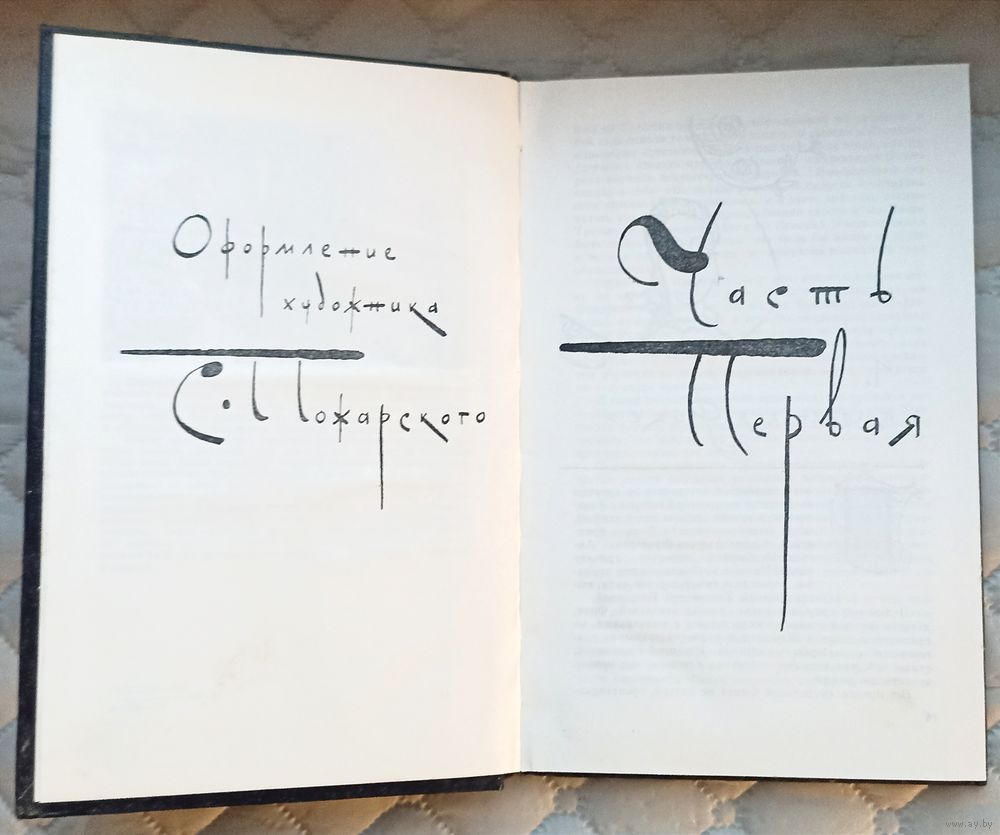 Оформление
художника
С. Пожарского
Часть
Первая
www.ay.by